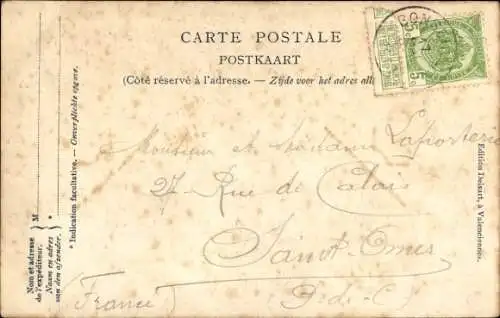 CARTE POSTALE
POSTKAART
(Côté réservé à l'adresse. — Zijde voor het adres
Monsieur et Madame Laporterie
27 Rue de Calais
Saint-Omer
P.-de-C.
(France)
* Indication facultative. — Onverplichte opgave.
M
*
Nom et adresse
de l'expéditeur.
Naam en adres
van den afzender.
Edition Delsart, à Valenciennes.